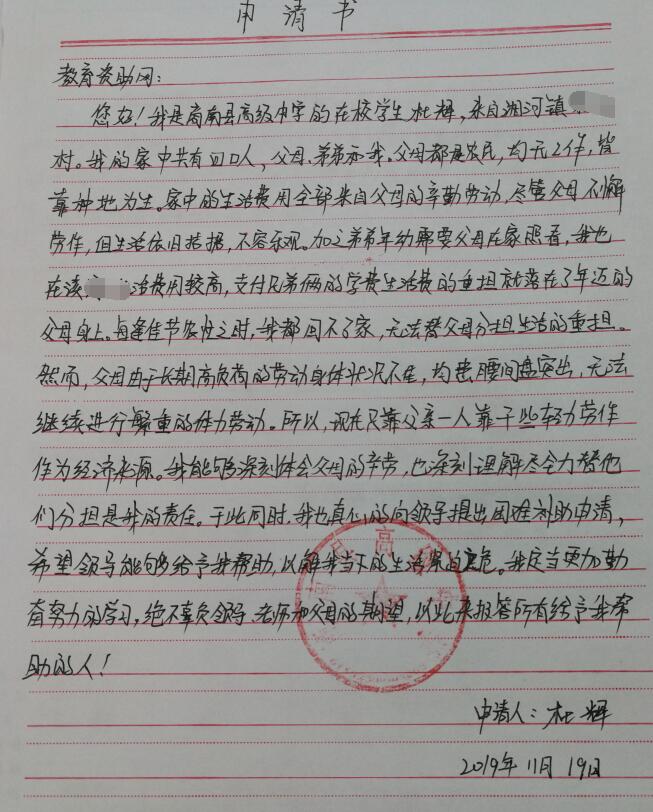 申请书
教育资助网：
您好！我是商南县高级中学的在校学生杜辉，来自湘河镇
村。我的家中共有四口人，父母、弟弟和我。父母都是农民，均无工作，皆
靠种地为生。家中的生活费用全部来自父母的辛勤劳动，尽管父母不懈
劳作，但生活依旧拮据，不容乐观。加之弟弟年幼需要父母在家照看，我也
在读 活费用较高，支付兄弟俩的学费生活费的重担就落在了年迈的
父母身上。每逢佳节农忙之时，我都回不了家，无法替父母分担生活的重担。
然而，父母由于长期高负荷的劳动身体状况不佳，均患腰间盘突出，无法
继续进行繁重的体力劳动。所以，现在只靠父亲一人靠干些轻劳作
作为经济来源。我能够深刻体会父母的辛劳，也深刻理解尽全力替他
们分担是我的责任。于此同时，我也真切的向领导提出困难补助申请，
希望领导能够给予我帮助，以解我当下的生活 危。我定当更加勤
奋努力的学习，绝不辜负领导、老师和父母的期望，以此来报答所有给予我帮
助的人！
申请人：杜辉
2019年11月19日